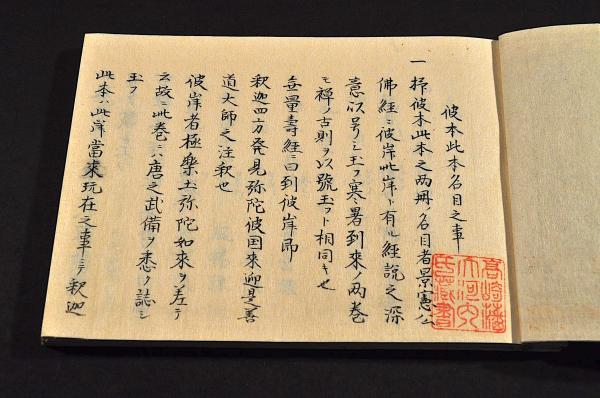 彼本此本名目之事
一 抑彼本此本之两冊ノ名目者景憲公
佛經ニ彼岸此岸ト有ル經説之深
意以号シ玉フ寒暑到来ノ两巻
モ禅ノ古則ヲ以號玉フト相同キ也
無量壽經ニ曰到彼岸昂
釈迦四方発見弥陀彼国来迎是善
道大師之注釈也
彼岸者極樂土弥陀如来ヲ差テ
云故ニ此巻ニハ唐之武備ヲ悉ク誌シ
玉フ
此本ハ此岸當来玩在之事ニテ釈迦
高崎藩
大河内
氏蔵書